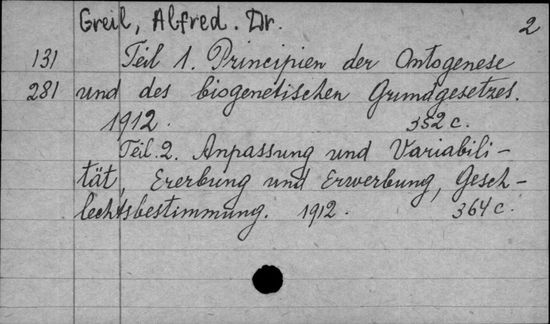 Greil, Alfred. Dr. 2
131 Teil 1. Principien der Ontogenese
281 und des biogenetischen Grundgesetzes.
1912. 352 c.
Teil. 2. Anpassung und Variabili-
tät, Ererbung und Erwerbung, Gesch-
lechtsbestimmung. 1912. 364 c.